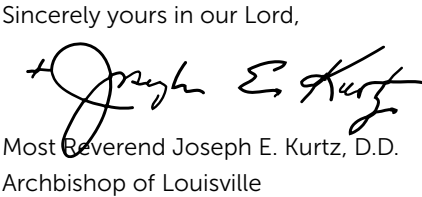 Sincerely yours in our Lord,
+Joseph E. Kurtz
Most Reverend Joseph E. Kurtz, D.D.
Archbishop of Louisville